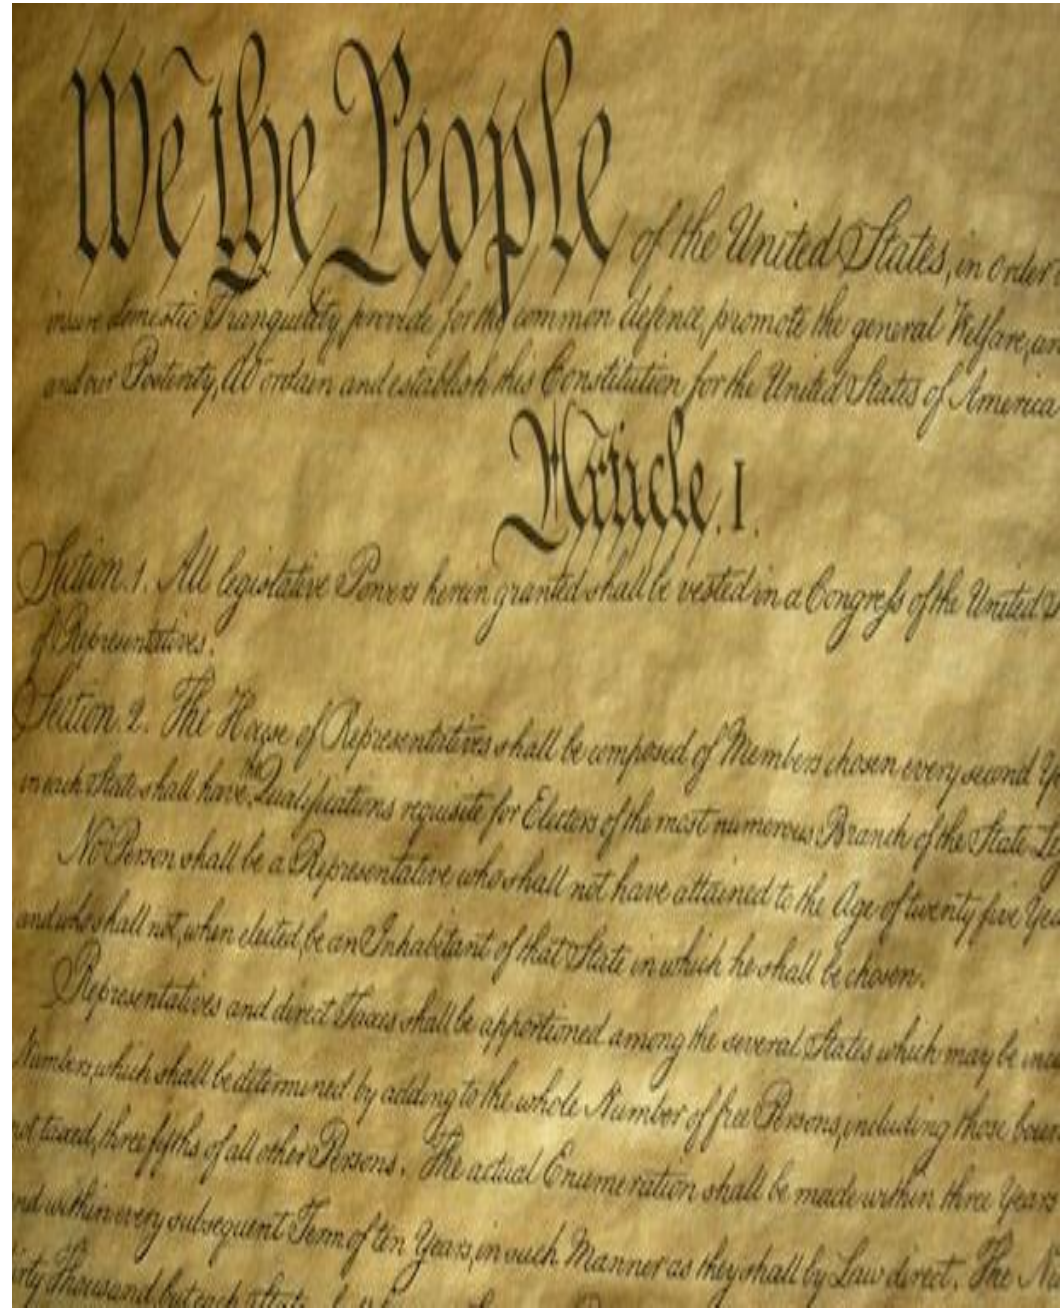 We the People of the United States, in Order
insure domestic Tranquility, provide for the common defence, promote the general Welfare, an
and our Posterity, do ordain and establish this Constitution for the United States of America
Article. I.
Section. 1. All legislative Powers herein granted shall be vested in a Congress of the United S
of Representatives.
Section. 2. The House of Representatives shall be composed of Members chosen every second Ye
in each State shall have the Qualifications requisite for Electors of the most numerous Branch of the State Leg
No Person shall be a Representative who shall not have attained to the Age of twenty five Yea
and who shall not, when elected, be an Inhabitant of that State in which he shall be chosen.
Representatives and direct Taxes shall be apportioned among the several States which may be inclu
Numbers, which shall be determined by adding to the whole Number of free Persons, including those boun
not taxed, three fifths of all other Persons. The actual Enumeration shall be made within three Years
and within every subsequent Term of ten Years, in such Manner as they shall by Law direct. The Nu
irty Thousand, but each State